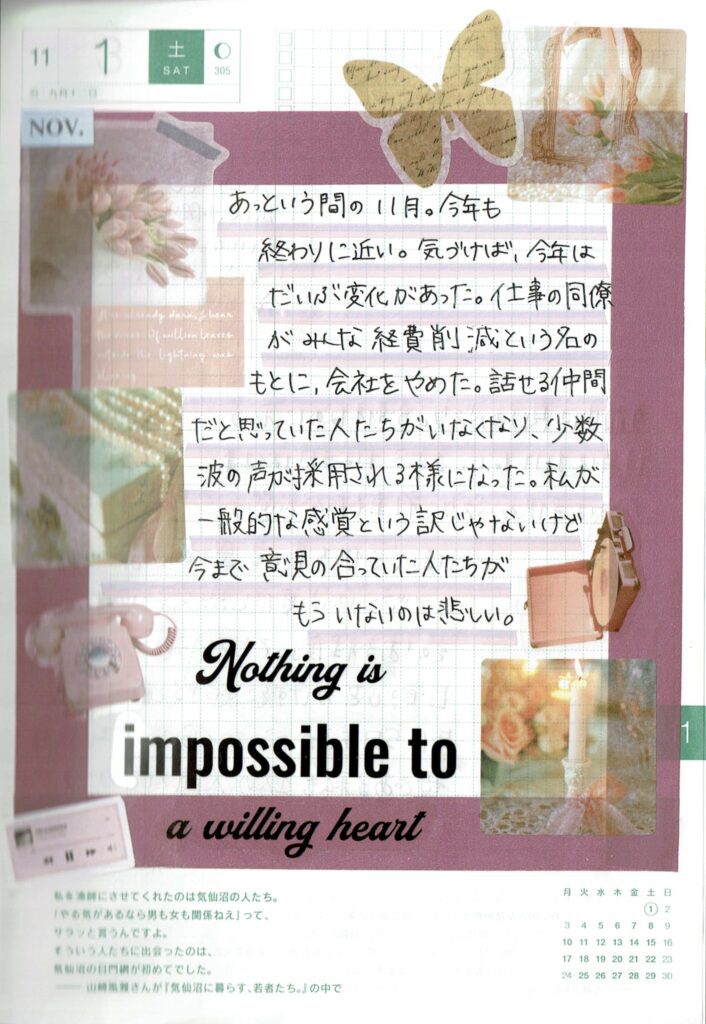 11
1
土
SAT
305
NOV.
あっという間の 11月。今年も
終わりに近い。気づけば、今年は
だいぶ変化があった。仕事の同僚
がみんな経費削減という名の
もとに、会社をやめた。話せる仲間
だと思っていた人たちがいなくなり、少数
波の声が採用される様になった。私が
一般的な感覚という訳じゃないけど
今まで意見の合っていた人たちが
もういないのは悲しい。
Nothing is
impossible to
a willing heart
1
私を漁師にさせてくれたのは気仙沼の人たち。
「やる気があるなら男も女も関係ねえ」って、
サラッと言うんですよ。
そういう人たちに出会ったのは、
気仙沼の日門網が初めてでした。
―― 山﨑風雅さんが『気仙沼に暮らす、若者たち。』の中で
月 火 水 木 金 土 日
1 2
3 4 5 6 7 8 9
10 11 12 13 14 15 16
17 18 19 20 21 22 23
24 25 26 27 28 29 30